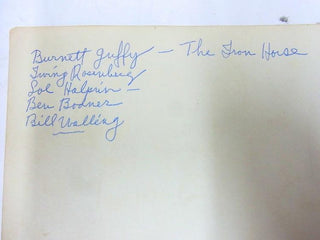 Burnett Guffy – The Iron Horse
Irving Rosenberg
Sol Halprin –
Ben Bodner
Bill Walling